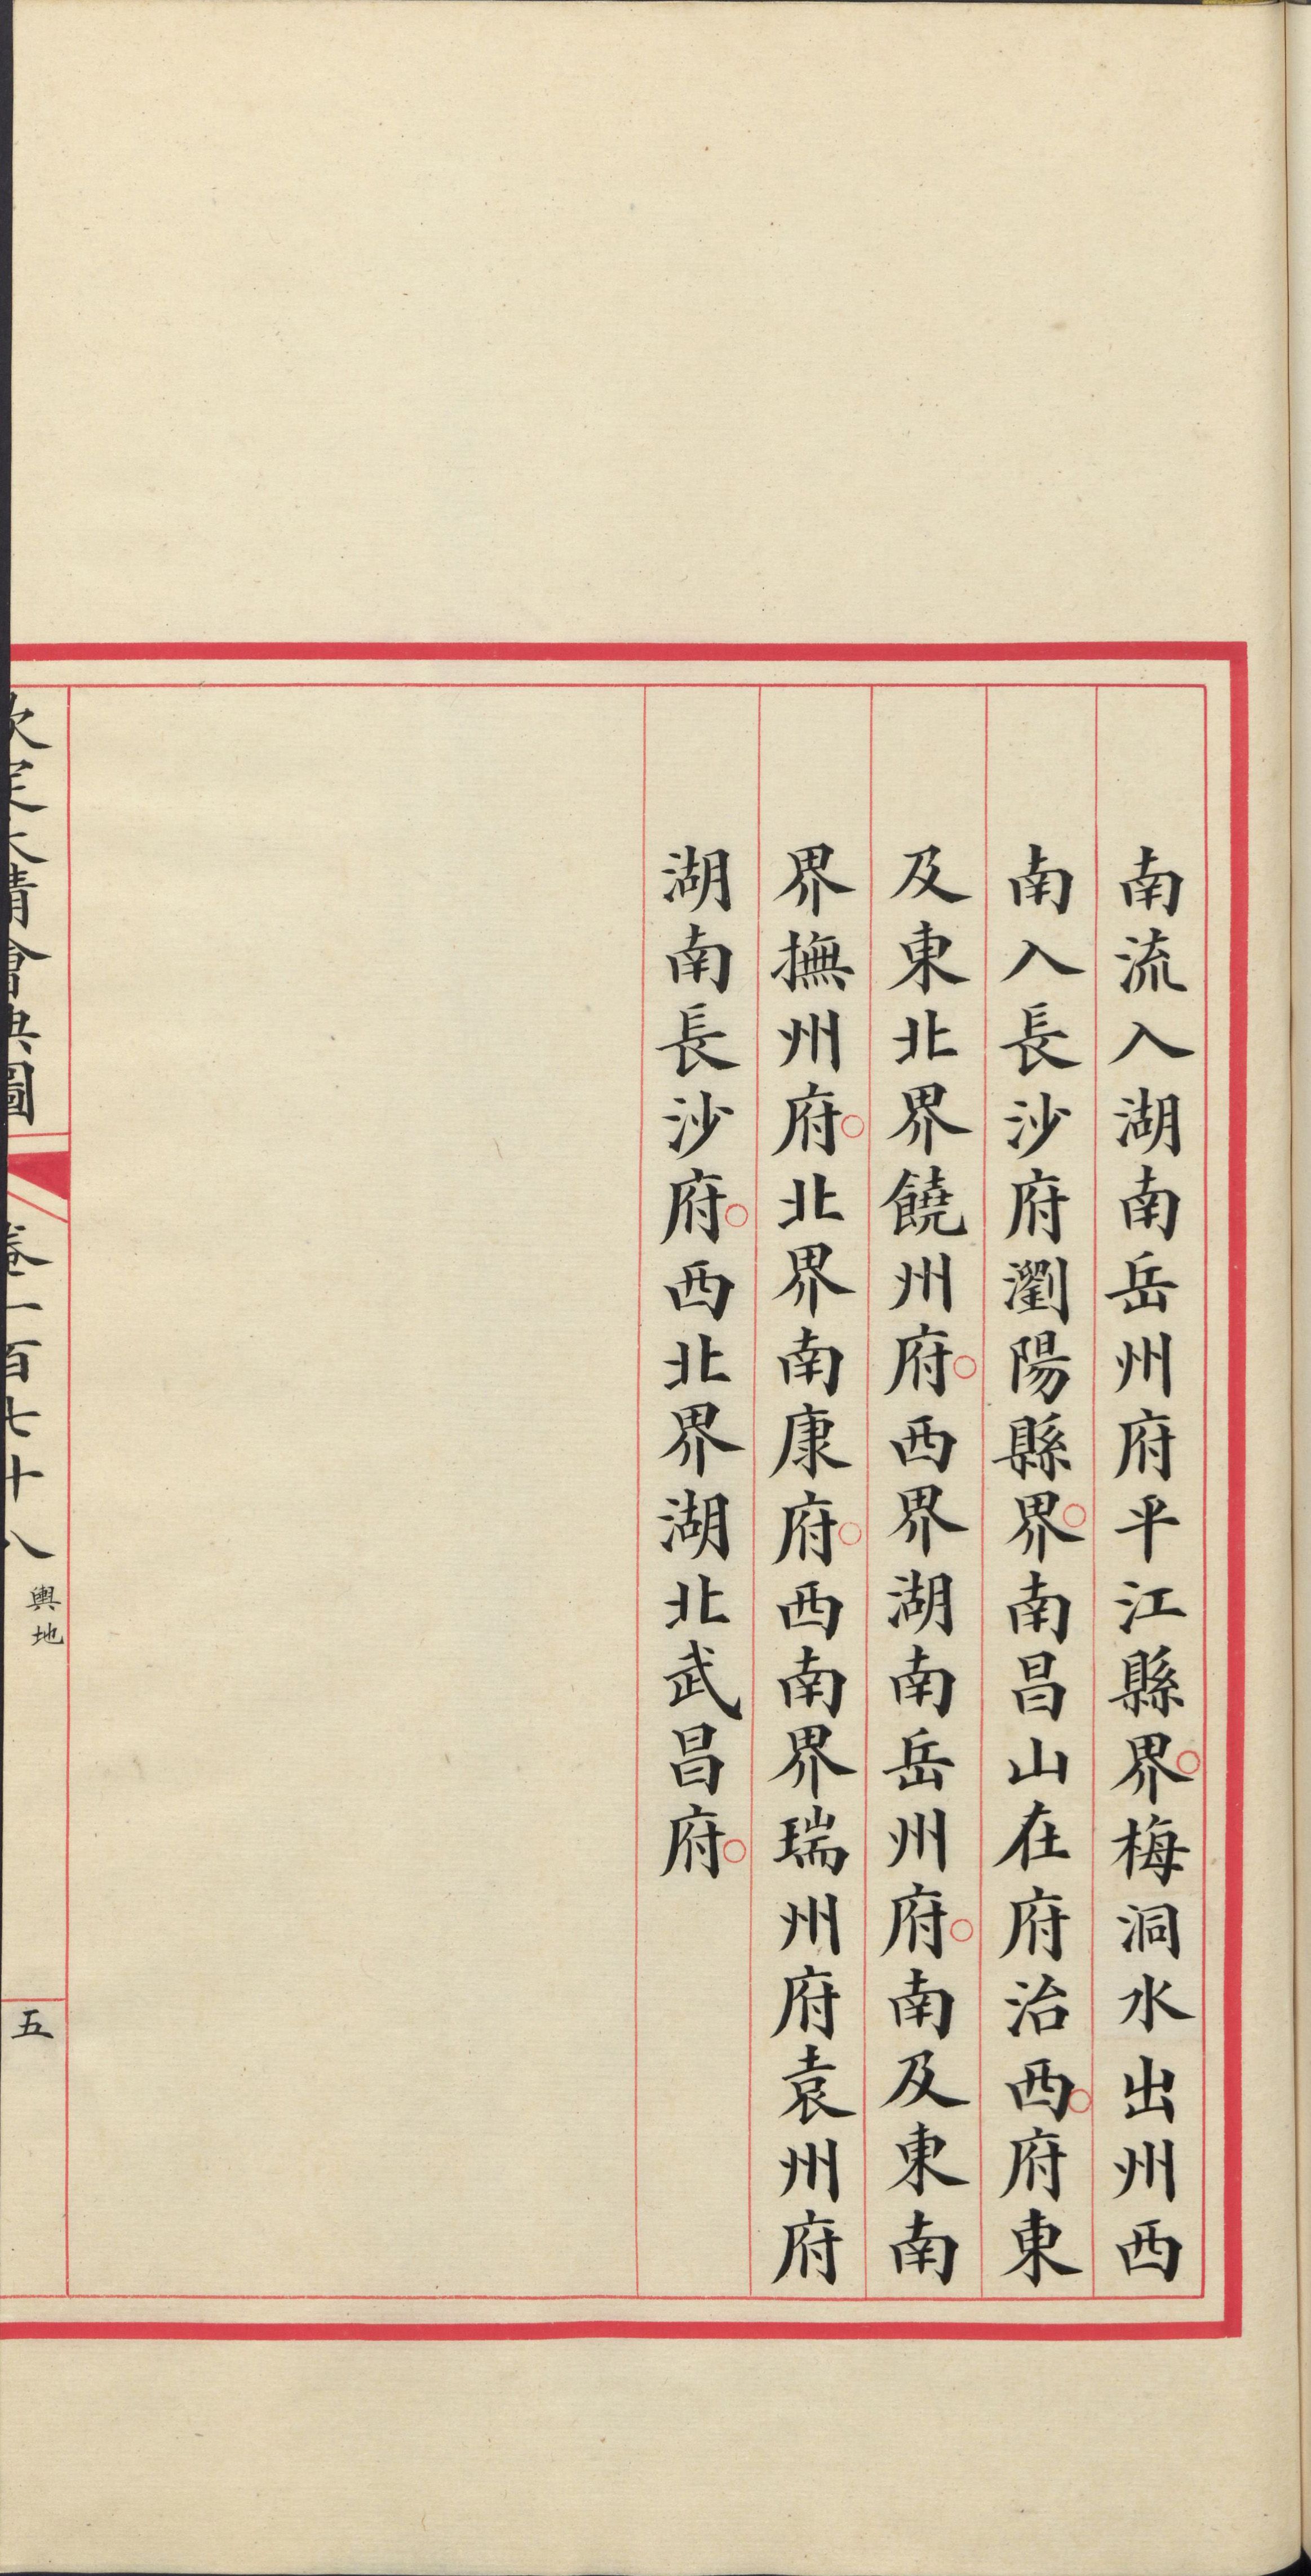 南流入湖南岳州府平江縣界○梅洞水出州西
南入長沙府瀏陽縣界○南昌山在府治西○府東
及東北界饒州府○西界湖南岳州府○南及東南
界撫州府○北界南康府○西南界瑞州府袁州府
湖南長沙府○西北界湖北武昌府○
欽定大清會典圖 卷一百七十八 輿地 五